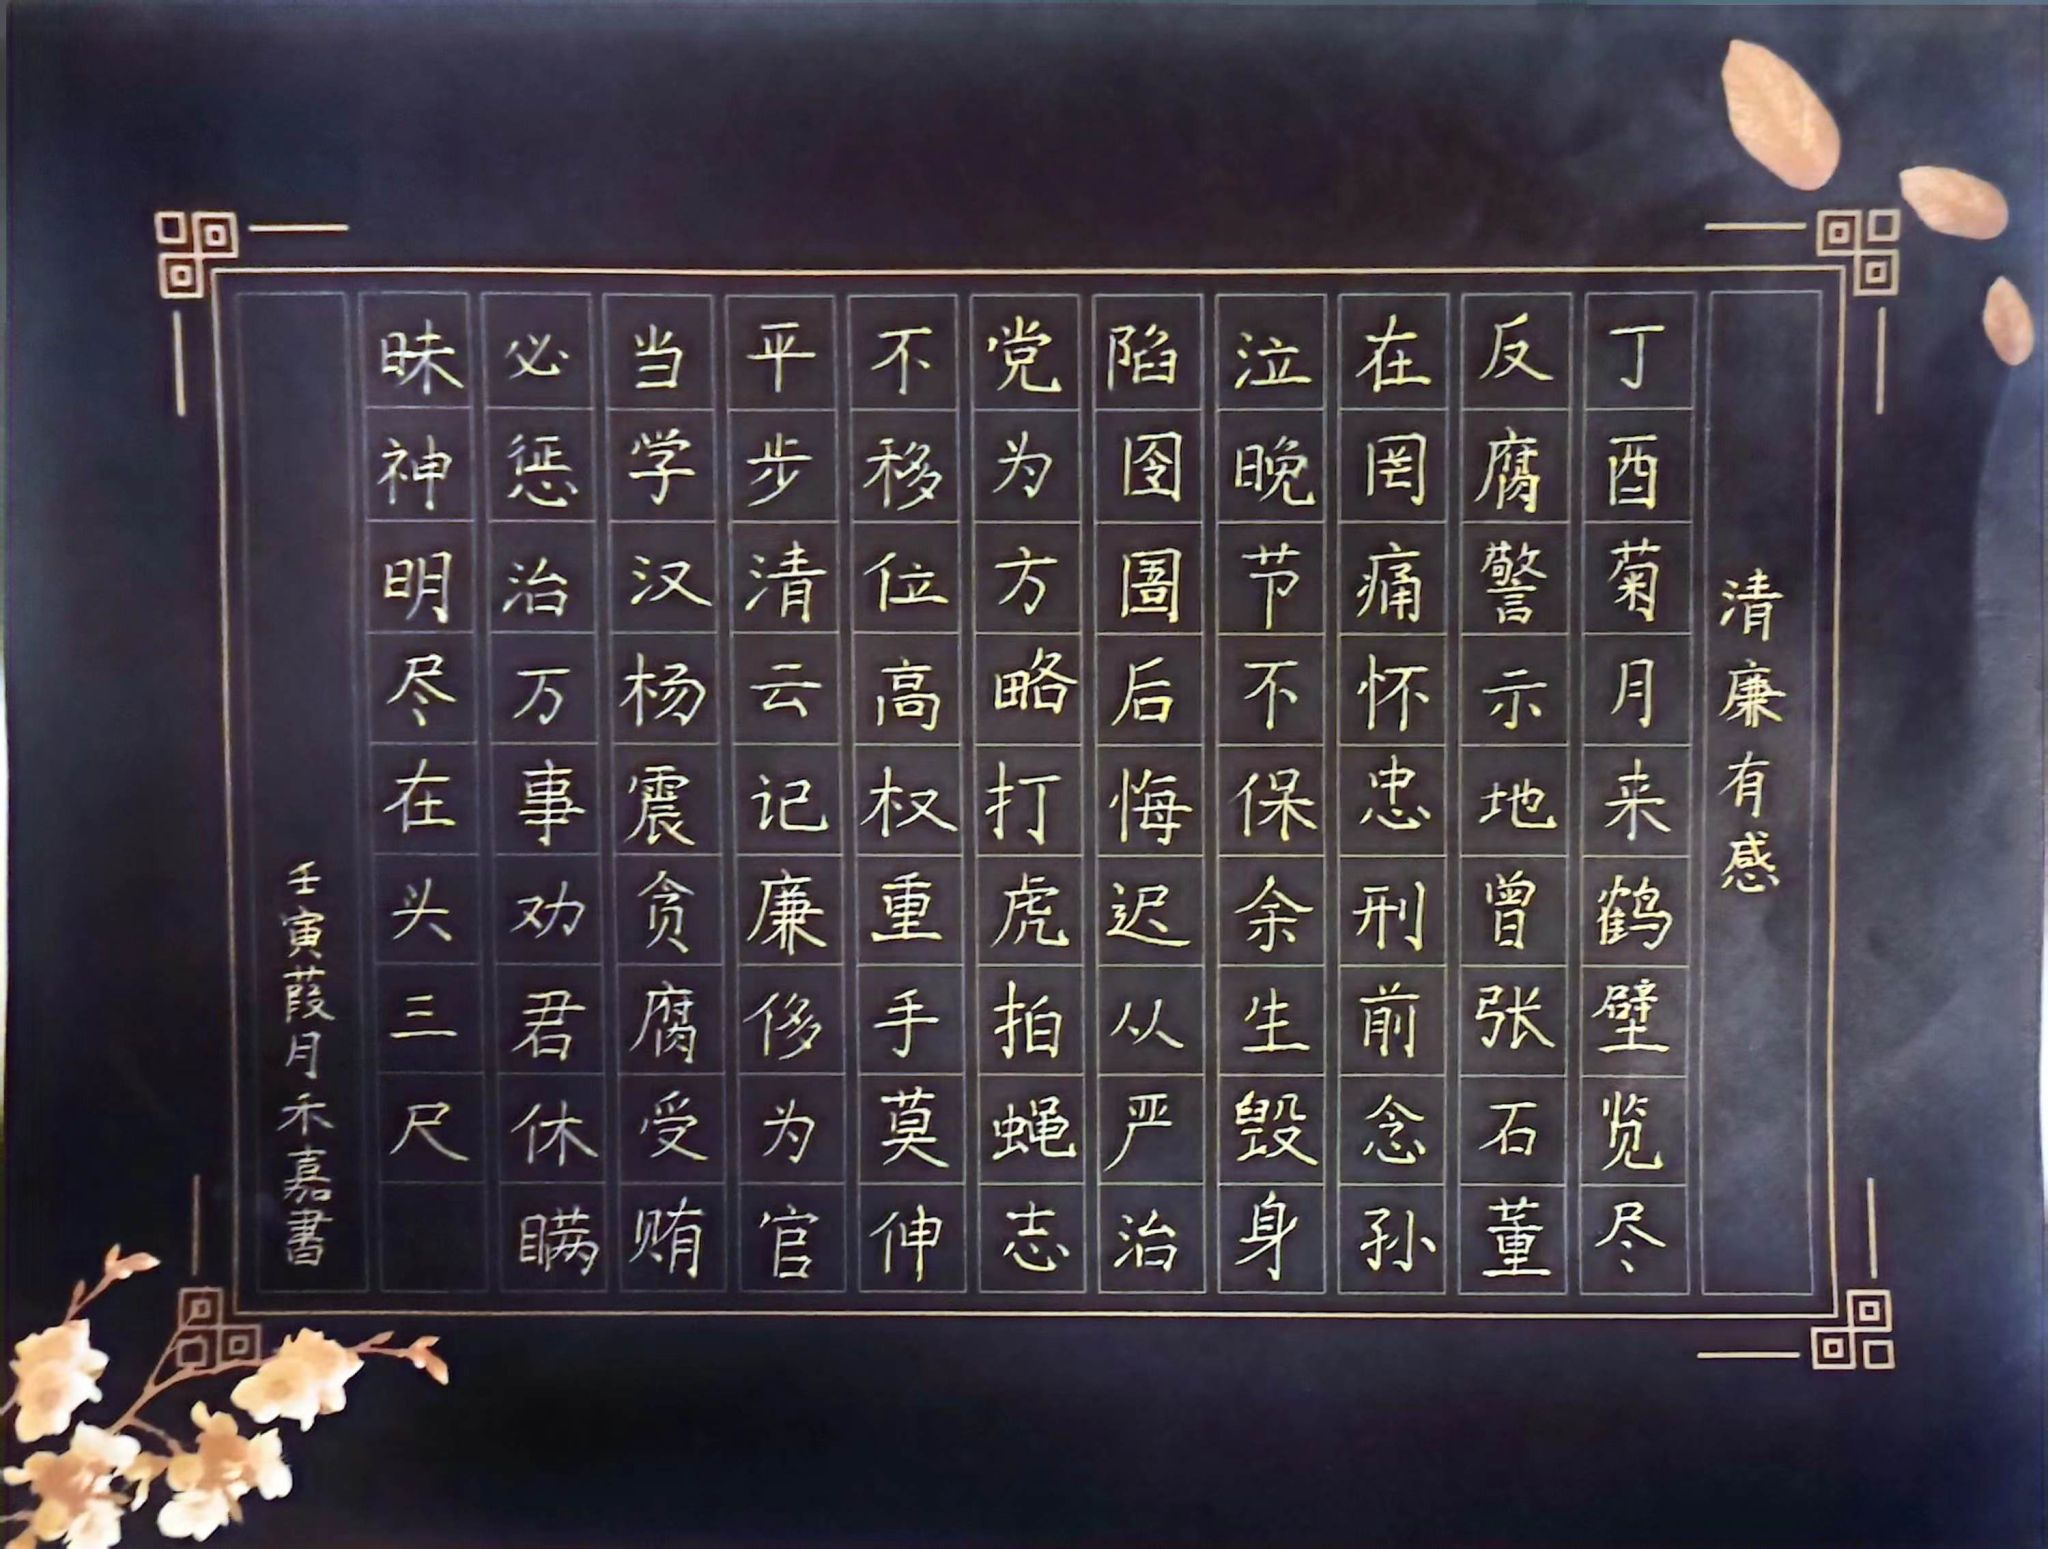 清廉有感
丁酉菊月来鹤壁览尽
反腐警示地曾张石董
在罔痛怀忠刑前念孙
泣晚节不保余生毁身
陷囹圄后悔迟从严治
党为方略打虎拍蝇志
不移位高权重手莫伸
平步清云记廉侈为官
当学汉杨震贪腐受贿
必惩治万事劝君休瞒
昧神明尽在头三尺
壬寅葭月禾嘉書